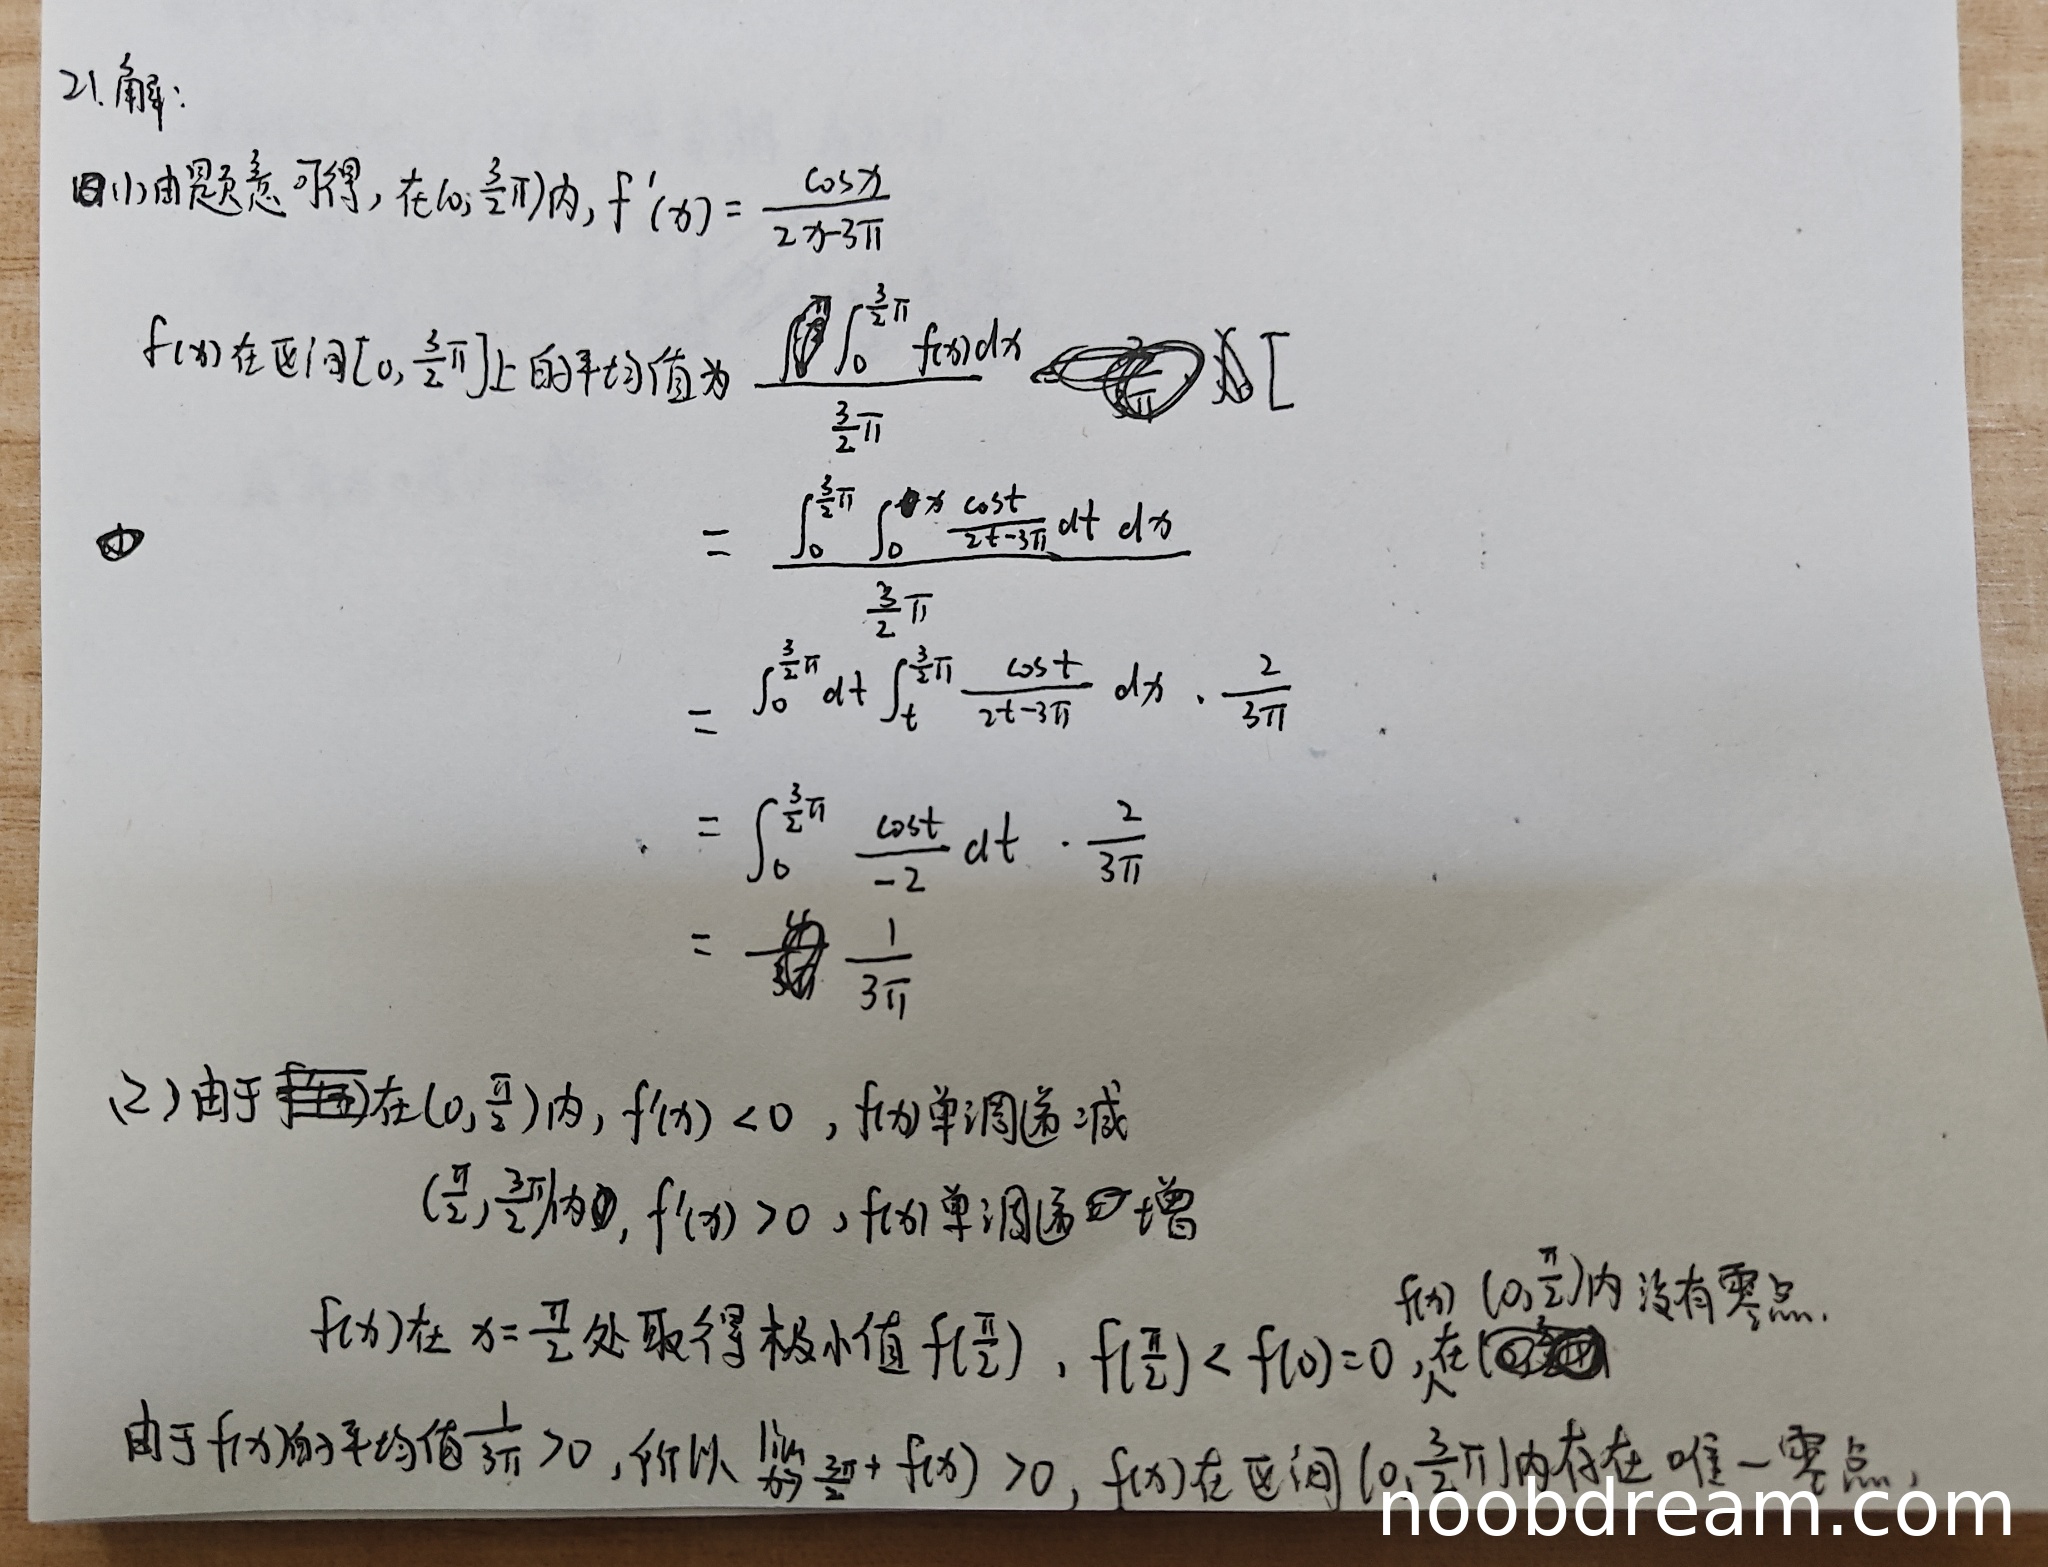 21.解:
(1)由题意可得,在(0,3/2π)内,f'(x)=cosx/(2x-3π)
f(x)在区间[0,3/2π]上的平均值为 ∫₀^(3/2π) f(x)dx / (3/2π) [
= ∫₀^(3/2π) ∫₀^x cost/(2t-3π) dt dx / (3/2π)
= ∫₀^(3/2π) dt ∫_t^(3/2π) cost/(2t-3π) dx · 2/(3π)
= ∫₀^(3/2π) cost/(-2) dt · 2/(3π)
= 1/(3π)
(2)由于在(0,π/2)内,f'(x)<0,f(x)单调递减
(π/2,3π/2)内,f'(x)>0,f(x)单调递增
f(x)在x=π/2处取得极小值f(π/2),f(π/2)<f(0)=0,在
f(x) (0,π/2)内没有零点.
由于f(x)的平均值1/(3π)>0,所以 lim x→3π/2+ f(x)>0,f(x)在区间(0,3/2π)内存在唯一零点,
noobdream.com